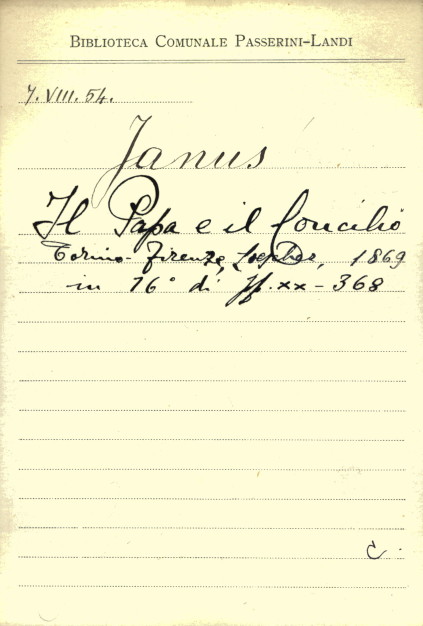 BIBLIOTECA COMUNALE PASSERINI-LANDI
7. VIII. 54.
Janus
Il Papa e il Concilio
Torino-Firenze, Loescher, 1869
in 16° di pp. xx - 368
C.